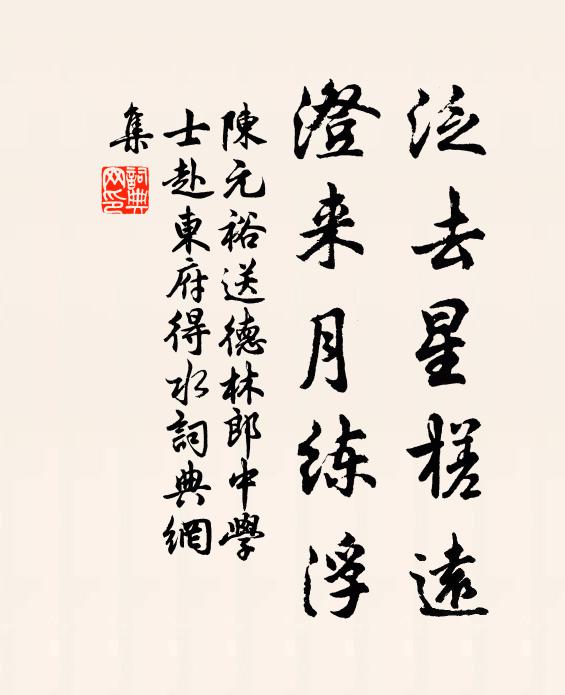 泛去星槎遠
澄来月练浮
陳元裕送德林郎中學
士赴東府得水詞典網
集
詞典
网印